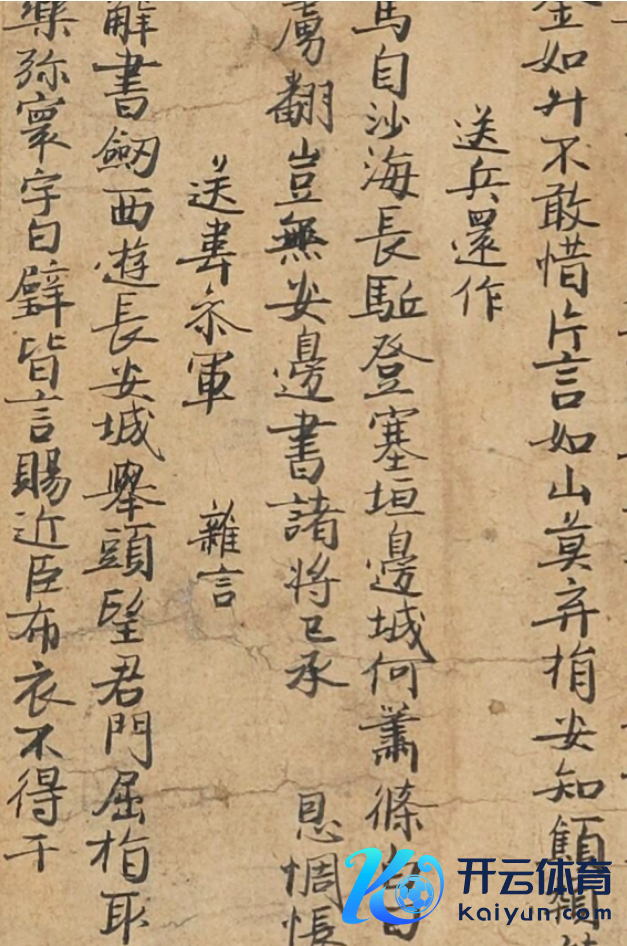 金如升不敢惜片言如山莫弃捐安知顦
送兵還作
馬自沙海長駈登塞垣邊城何蕭條白
虜翻豈無安邊書諸將已承 恩惆悵
送韋參軍 雜言
解書劔西遊長安城舉頭望君門屈指取
樂弥寰宇白璧皆言賜近臣布衣不得干
开云体育
Kaiyun.com